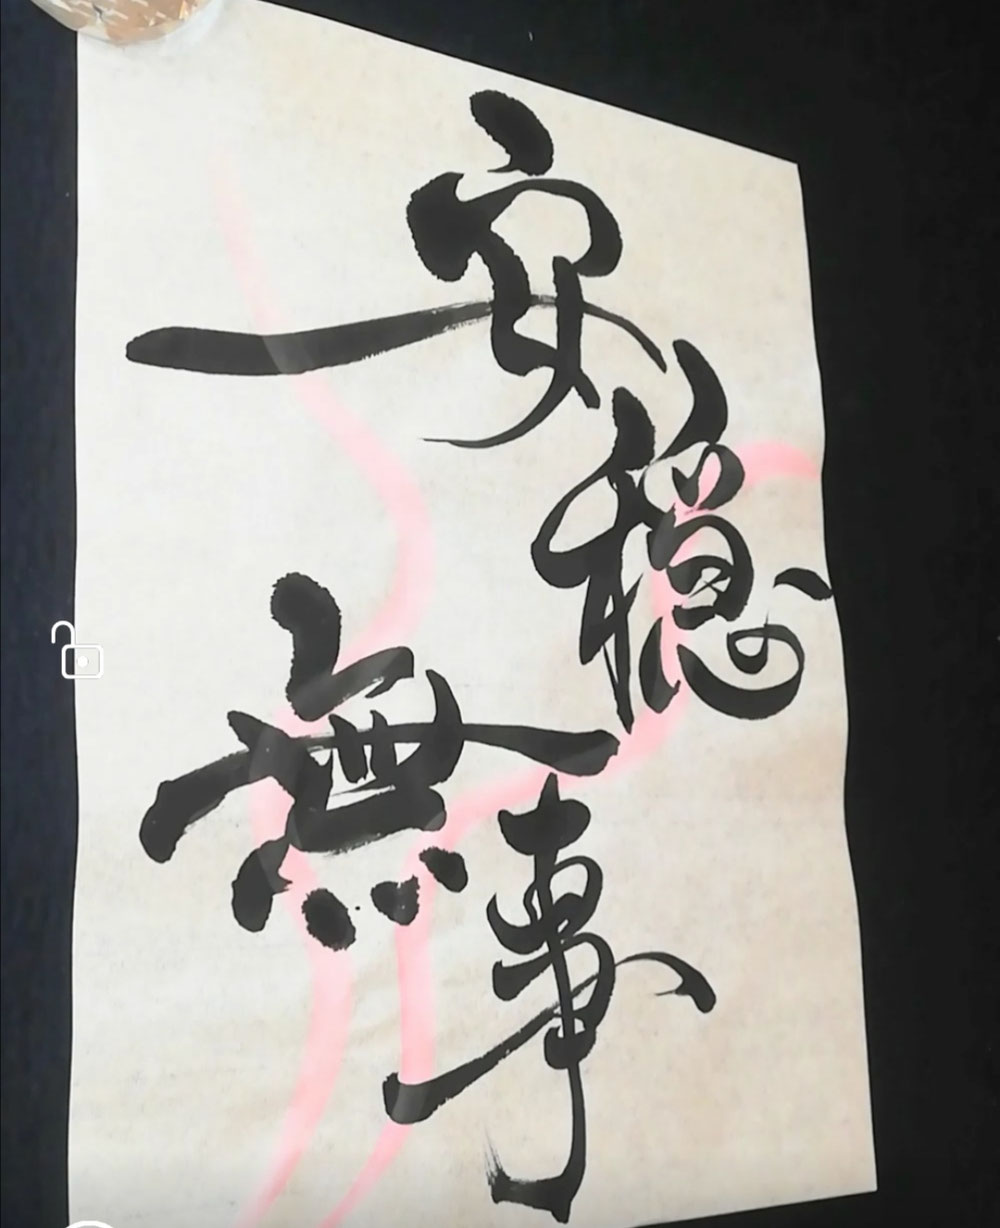 安穏
無事